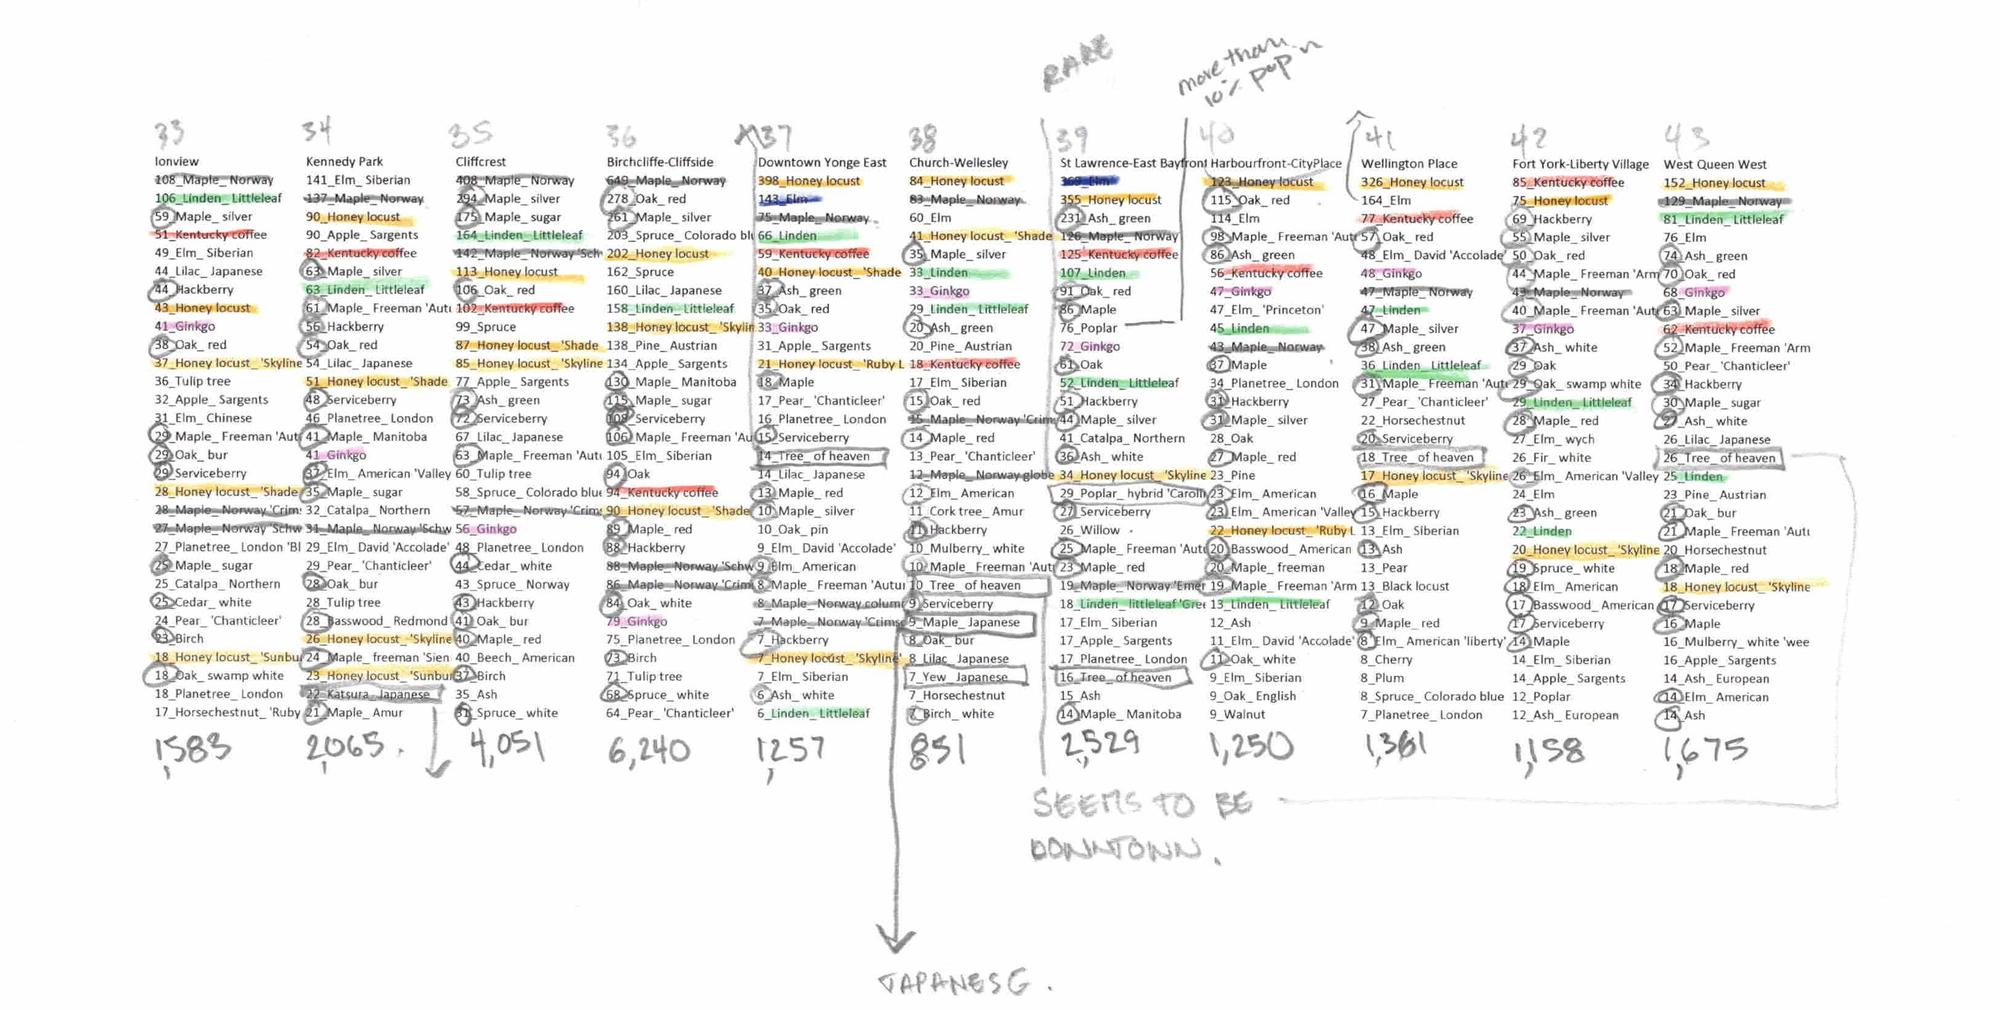 RARE
more than
10% pop n
33
Ionview
108_Maple_ Norway
106_Linden_ Littleleaf
59_Maple_ silver
51_Kentucky coffee
49_Elm_ Siberian
44_Lilac_ Japanese
44_Hackberry
43_Honey locust
41_Ginkgo
38_Oak_ red
37_Honey locust_ 'Skyline
36_Tulip tree
32_Apple_ Sargents
31_Elm_ Chinese
29_Maple_ Freeman 'Aut
29_Oak_ bur
29_Serviceberry
28_Honey locust_ 'Shade
28_Maple_ Norway 'Crim
27_Maple_ Norway 'Schw
27_Planetree_ London 'Bl
25_Maple_ sugar
25_Catalpa_ Northern
25_Cedar_ white
24_Pear_ 'Chanticleer'
23_Birch
18_Honey locust_ 'Sunbu
18_Oak_ swamp white
18_Planetree_ London
17_Horsechestnut_ 'Ruby
1,583
34
Kennedy Park
141_Elm_ Siberian
137_Maple_ Norway
90_Honey locust
90_Apple_ Sargents
82_Kentucky coffee
63_Maple_ silver
63_Linden_ Littleleaf
61_Maple_ Freeman 'Aut
56_Hackberry
54_Oak_ red
54_Lilac_ Japanese
51_Honey locust_ 'Shade
48_Serviceberry
46_Planetree_ London
41_Maple_ Manitoba
41_Ginkgo
37_Elm_ American 'Valley
35_Maple_ sugar
32_Catalpa_ Northern
31_Maple_ Norway 'Schw
29_Elm_ David 'Accolade'
29_Pear_ 'Chanticleer'
28_Oak_ bur
28_Tulip tree
28_Basswood_ Redmond
26_Honey locust_ 'Skyline
24_Maple_ freeman 'Sien
23_Honey locust_ 'Sunbu
22_Katsura_ Japanese
21_Maple_ Amur
2,065
35
Cliffcrest
408_Maple_ Norway
294_Maple_ silver
175_Maple_ sugar
164_Linden_ Littleleaf
142_Maple_ Norway 'Sch
113_Honey locust
106_Oak_ red
102_Kentucky coffee
99_Spruce
87_Honey locust_ 'Shade
85_Honey locust_ 'Skyline
77_Apple_ Sargents
73_Ash_ green
72_Serviceberry
67_Lilac_ Japanese
63_Maple_ Freeman 'Aut
60_Tulip tree
58_Spruce_ Colorado blue
57_Maple_ Norway 'Crim
56_Ginkgo
48_Planetree_ London
44_Cedar_ white
43_Spruce_ Norway
43_Hackberry
41_Oak_ bur
40_Maple_ red
40_Beech_ American
37_Birch
35_Ash
31_Spruce_ white
4,051
36
Birchcliffe-Cliffside
649_Maple_ Norway
278_Oak_ red
261_Maple_ silver
203_Spruce_ Colorado blu
202_Honey locust
162_Spruce
160_Lilac_ Japanese
158_Linden_ Littleleaf
138_Honey locust_ 'Skylin
138_Pine_ Austrian
134_Apple_ Sargents
130_Maple_ Manitoba
115_Maple_ sugar
108_Serviceberry
106_Maple_ Freeman 'Au
105_Elm_ Siberian
94_Oak
94_Kentucky coffee
90_Honey locust_ 'Shade
89_Maple_ red
88_Hackberry
88_Maple_ Norway 'Schw
86_Maple_ Norway 'Crim
84_Oak_ white
79_Ginkgo
75_Planetree_ London
73_Birch
71_Tulip tree
68_Spruce_ white
64_Pear_ 'Chanticleer'
6,240
37
Downtown Yonge East
398_Honey locust
143_Elm
75_Maple_ Norway
66_Linden
59_Kentucky coffee
40_Honey locust_ 'Shade
37_Ash_ green
35_Oak_ red
33_Ginkgo
31_Apple_ Sargents
21_Honey locust_ 'Ruby L
18_Maple
17_Pear_ 'Chanticleer'
16_Planetree_ London
15_Serviceberry
14_Tree_ of heaven
14_Lilac_ Japanese
13_Maple_ red
10_Maple_ silver
10_Oak_ pin
9_Elm_ David 'Accolade'
9_Elm_ American
8_Maple_ Freeman 'Autu
8_Maple_ Norway colum
7_Maple_ Norway 'Crims
7_Hackberry
7_Honey locust_ 'Skyline'
7_Elm_ Siberian
6_Ash_ white
6_Linden_ Littleleaf
1,257
38
Church-Wellesley
84_Honey locust
83_Maple_ Norway
60_Elm
41_Honey locust_ 'Shade
35_Maple_ silver
33_Linden
33_Ginkgo
29_Linden_ Littleleaf
20_Ash_ green
20_Pine_ Austrian
18_Kentucky coffee
17_Elm_ Siberian
15_Oak_ red
15_Maple_ Norway 'Crim
14_Maple_ red
13_Pear_ 'Chanticleer'
12_Maple_ Norway globe
12_Elm_ American
11_Cork tree_ Amur
11_Hackberry
10_Mulberry_ white
10_Maple_ Freeman 'Aut
10_Tree_ of heaven
9_Serviceberry
9_Maple_ Japanese
8_Oak_ bur
8_Lilac_ Japanese
7_Yew_ Japanese
7_Horsechestnut
7_Birch_ white
851
39
St Lawrence-East Bayfront
369_Elm
355_Honey locust
231_Ash_ green
126_Maple_ Norway
125_Kentucky coffee
107_Linden
91_Oak_ red
86_Maple
76_Poplar
72_Ginkgo
61_Oak
52_Linden_ Littleleaf
51_Hackberry
44_Maple_ silver
41_Catalpa_ Northern
36_Ash_ white
34_Honey locust_ 'Skyline
29_Poplar_ hybrid 'Caroli
27_Serviceberry
26_Willow
25_Maple_ Freeman 'Aut
23_Maple_ red
19_Maple_ Norway 'Emer
18_Linden_ littleleaf 'Gree
17_Elm_ Siberian
17_Apple_ Sargents
17_Planetree_ London
16_Tree_ of heaven
15_Ash
14_Maple_ Manitoba
2,529
40
Harbourfront-CityPlace
123_Honey locust
115_Oak_ red
114_Elm
98_Maple_ Freeman 'Aut
86_Ash_ green
56_Kentucky coffee
47_Ginkgo
47_Elm_ 'Princeton'
45_Linden
43_Maple_ Norway
37_Maple
34_Planetree_ London
31_Hackberry
31_Maple_ silver
28_Oak
27_Maple_ red
23_Pine
23_Elm_ American
23_Elm_ American 'Valley
22_Honey locust_ 'Ruby L
20_Basswood_ American
20_Maple_ freeman
19_Maple_ Freeman 'Arm
13_Linden_ Littleleaf
12_Ash
11_Elm_ David 'Accolade'
11_Oak_ white
9_Elm_ Siberian
9_Oak_ English
9_Walnut
1,250
41
Wellington Place
326_Honey locust
164_Elm
77_Kentucky coffee
57_Oak_ red
48_Elm_ David 'Accolade'
48_Ginkgo
47_Maple_ Norway
47_Linden
47_Maple_ silver
38_Ash_ green
36_Linden_ Littleleaf
31_Maple_ Freeman 'Aut
27_Pear_ 'Chanticleer'
22_Horsechestnut
20_Serviceberry
18_Tree_ of heaven
17_Honey locust_ 'Skyline
16_Maple
15_Hackberry
13_Elm_ Siberian
13_Ash
13_Pear
13_Black locust
12_Oak
9_Maple_ red
8_Elm_ American 'liberty'
8_Cherry
8_Plum
8_Spruce_ Colorado blue
7_Planetree_ London
1,361
42
Fort York-Liberty Village
85_Kentucky coffee
75_Honey locust
69_Hackberry
55_Maple_ silver
50_Oak_ red
44_Maple_ Freeman 'Arm
43_Maple_ Norway
40_Maple_ Freeman 'Aut
37_Ginkgo
37_Ash_ white
29_Oak
29_Oak_ swamp white
29_Linden_ Littleleaf
28_Maple_ red
27_Elm_ wych
26_Fir_ white
26_Elm_ American 'Valley
24_Elm
23_Ash_ green
22_Linden
20_Honey locust_ 'Skyline
19_Spruce_ white
18_Elm_ American
17_Basswood_ American
17_Serviceberry
14_Maple
14_Elm_ Siberian
14_Apple_ Sargents
12_Poplar
12_Ash_ European
1,158
43
West Queen West
152_Honey locust
129_Maple_ Norway
81_Linden_ Littleleaf
76_Elm
74_Ash_ green
70_Oak_ red
68_Ginkgo
63_Maple_ silver
62_Kentucky coffee
52_Maple_ Freeman 'Arm
50_Pear_ 'Chanticleer'
34_Hackberry
30_Maple_ sugar
27_Ash_ white
26_Lilac_ Japanese
26_Tree_ of heaven
25_Linden
23_Pine_ Austrian
21_Oak_ bur
21_Maple_ Freeman 'Aut
20_Horsechestnut
18_Maple_ red
18_Honey locust_ 'Skyline
17_Serviceberry
16_Maple
16_Mulberry_ white 'wee
16_Apple_ Sargents
14_Ash_ European
14_Elm_ American
14_Ash
1,675
SEEMS TO BE
DOWNTOWN.
JAPANESE.